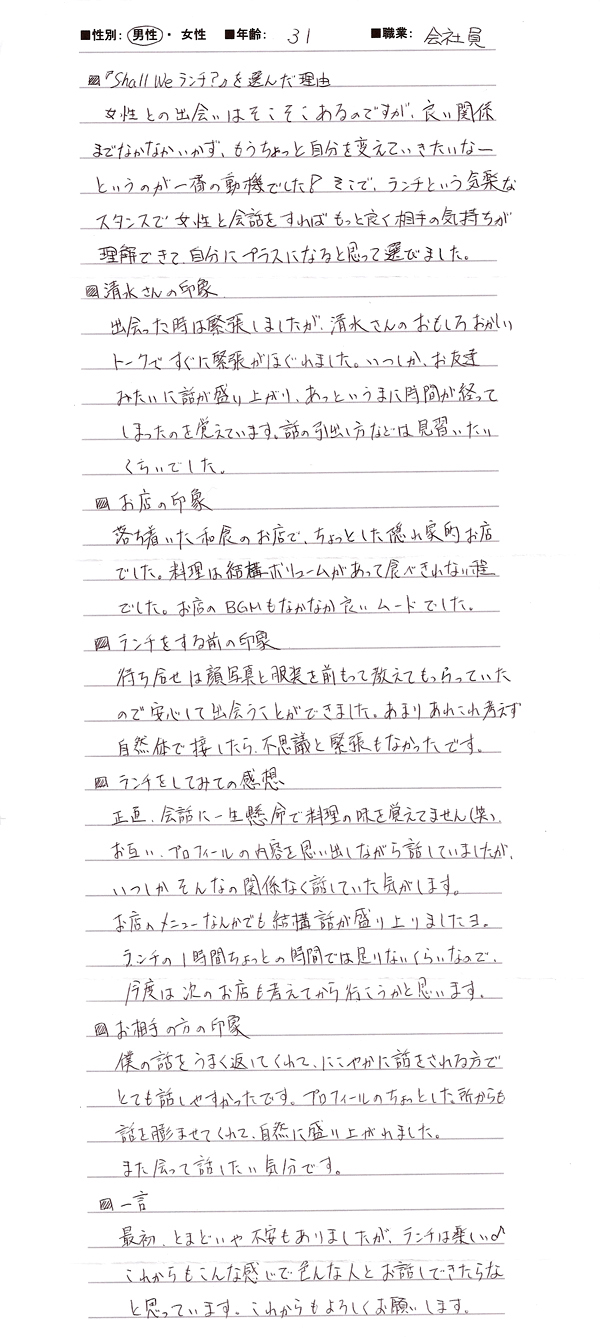 ■性別: 男性・女性 ■年齢: 31 ■職業: 会社員
『Shall We ランチ?』を選んだ理由
女性との出会いはそこそこあるのですが、良い関係
までなかなかいかず、もうちょっと自分を変えていきたいなー
というのが一番の動機でした。そこで、ランチという気楽な
スタンスで女性と会話をすればもっと良く相手の気持ちが
理解できて、自分にプラスになると思って選びました。
清水さんの印象
出会った時は緊張しましたが、清水さんのおもしろおかしい
トークですぐに緊張がほぐれました。いつしか、お友達
みたいに話が盛り上がり、あっというまに時間が経って
しまったのを覚えています。話の引出し方などは見習いたい
くらいでした。
お店の印象
落ち着いた和食のお店で、ちょっとした隠れ家的お店
でした。料理は結構ボリュームがあって食べきれない程
でした。お店のBGMもなかなか良いムードでした。
ランチをする前の印象
待ち合せは顔写真と服装を前もって教えてもらっていた
ので安心して出会うことができました。あまりあれこれ考えず
自然体で接したら、不思議と緊張もなかったです。
ランチをしてみての感想
正直、会話に一生懸命で料理の味を覚えてません(笑)。
お互い、プロフィールの内容を思い出しながら話していましたが、
いつしかそんなの関係なく話していた気がします。
お店のメニューなんかでも結構話が盛り上りましたヨ。
ランチの1時間ちょっとの時間では足りないくらいなので、
今度は次のお店も考えてから行こうかと思います。
お相手の方の印象
僕の話をうまく返してくれて、にこやかに話をされる方で
とても話しやすかったです。プロフィールのちょっとした所からも
話を膨ませてくれて、自然に盛り上がれました。
また会って話したい気分です。
一言
最初、とまどいや不安もありましたが、ランチは楽しい♪
これからもこんな感じで色んな人とお話しできたらな
と思っています。これからもよろしくお願いします。